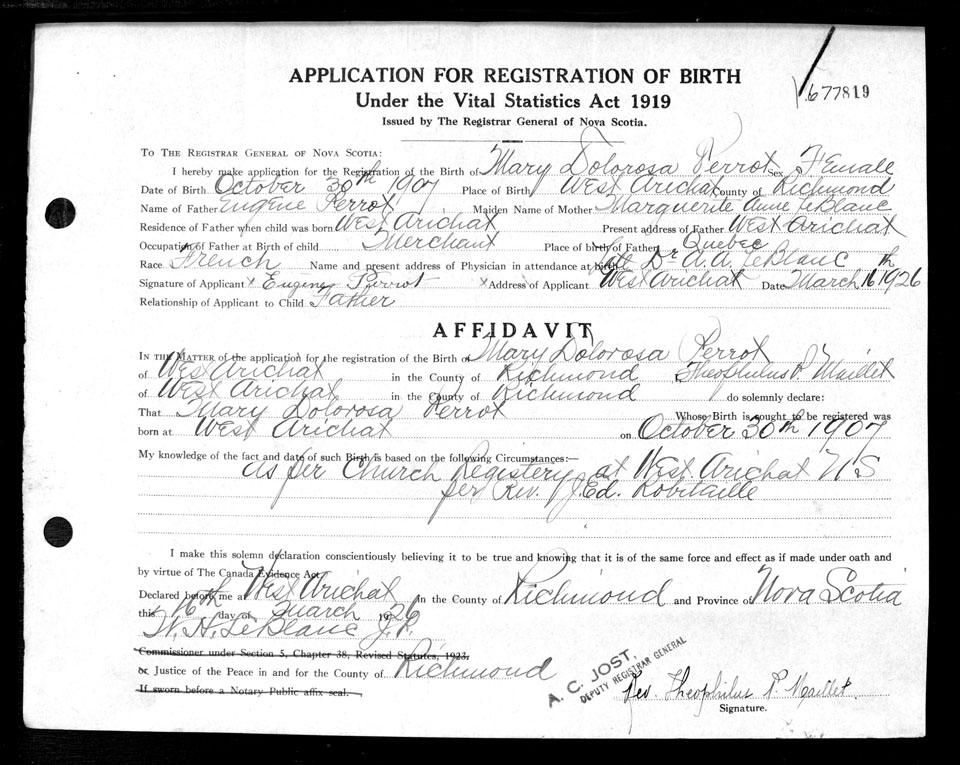 APPLICATION FOR REGISTRATION OF BIRTH
Under the Vital Statistics Act 1919
677819
Issued by The Registrar General of Nova Scotia.
TO THE REGISTRAR GENERAL OF NOVA SCOTIA:
I hereby make application for the Registration of the Birth of Mary Dolorosa Perrot Sex Female
Date of Birth October 30th 1907 Place of Birth West Arichat County of Richmond
Name of Father Eugene Perrot Maiden Name of Mother Marguerite Anne LeBlanc
Residence of Father when child was born West Arichat Present address of Father West Arichat
Occupation of Father at Birth of child Merchant Place of birth of Father Quebec
Race French Name and present address of Physician in attendance at birth Late Dr A.A. LeBlanc
Signature of Applicant x Eugene Perrot x Address of Applicant West Arichat Date March 16th 1926
Relationship of Applicant to Child Father
AFFIDAVIT
IN THE MATTER of the application for the registration of the Birth of Mary Dolorosa Perrot
of West Arichat in the County of Richmond Theophilus P. Maillet
of West Arichat in the County of Richmond do solemnly declare:
That Mary Dolorosa Perrot Whose Birth is sought to be registered was
born at West Arichat on October 30th 1907
My knowledge of the fact and date of such Birth is based on the following Circumstances:—
as per Church Registery at West Arichat N S
per Rev. J. Ed. Robitaille
I make this solemn declaration conscientiously believing it to be true and knowing that it is of the same force and effect as if made under oath and
by virtue of The Canada Evidence Act.
Declared before me at West Arichat in the County of Richmond and Province of Nova Scotia
this 16th day of March 1926
W. H. LeBlanc J.P.
Commissioner under Section 5, Chapter 38, Revised Statutes, 1923.
or Justice of the Peace in and for the County of Richmond
If sworn before a Notary Public affix seal.
A. C. JOST,
DEPUTY REGISTRAR GENERAL
Rev. Theophilus P. Maillet
Signature.